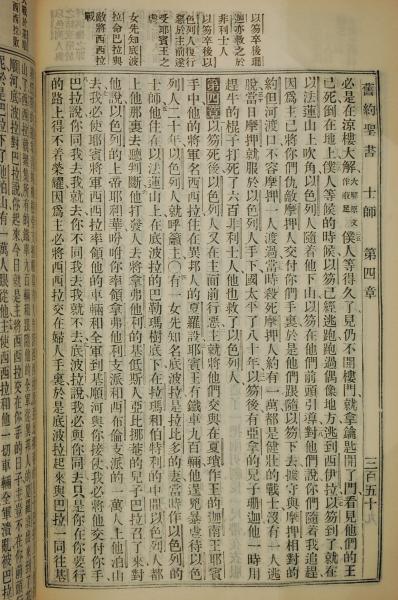 舊約聖書　士師　第四章　三百五十九
必是在涼樓大解大解原文作收足僕人等得久了見仍不開樓門就拿鑰匙開了門看見他們的主
已死倒在地上僕人等候的時候以笏已經逃跑跑過偶像地方逃到西伊拉以笏到了就在
以法蓮山上吹角以色列人隨着他下山以笏在他們前頭引導對他們說你們隨着我追趕
因爲主已將你們仇敵摩押人交付你們手裏於是他們跟隨以笏下去據守與摩押相對的
約但河渡口不容摩押一人渡過當時殺死摩押人約有一萬都是健壯的戰士沒有一人逃
脫當日摩押就服於以色列人手下國太平了八十年以笏後有亞拿的兒子珊迦他一時用
趕牛的棍子打死了六百非利士人他也救了以色列人
第四章以笏死後以色列人又在主面前行惡主就將他們交與在夏瑣作王的迦南王耶賓
手中他的將軍名西西拉住在異邦人的夏羅設耶賓王有鐵車九百輛他逞兇暴虐待以色
列人二十年以色列人就呼籲主〇有一女先知名底波拉是拉比多的妻當時作以色列的
士師他住在以法蓮山上在底波拉的巴勒瑪樹底下在拉瑪和伯特利的中間以色列人都
上他那裏去聽判斷他打發人去將拿弗他利的基低斯人亞比挪菴的兒子巴拉召了來對
他說以色列的上帝耶和華吩咐你率領拿弗他利支派和西布倫支派的一萬人上他泊山
去我必使耶賓將軍西西拉率領他的車輛和全軍到基順河與你接仗我必將他交付你手
巴拉說你同我去我就去你不同我去我就不去底波拉說我必與你同去只是你在你要行
的路上得不着榮耀因爲主必將西西拉交在婦人手裏於是底波拉起來與巴拉一同往基
以笏卒後珊
迦亦救之於
非利士人
以笏卒後以
色列人復行
惡於主前遂
受耶賓王之
虐
女先知底波
拉命巴拉與
敵將西西拉
戰